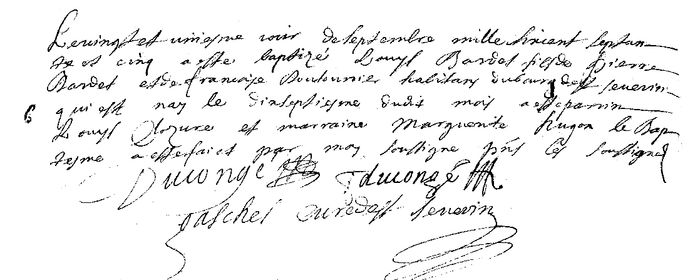 Le vingt et uniesme jour de septembre mille six cent septan-
te et cinq a este baptizé Louys Bardet fils de Pierre
Bardet et de francoise habitans du bourg de st severin
qui est nay le dixseptiesme dudit mois a este parrin
Louys et marraine Marguerite hugon le Bap
tesme a este faict par moy soussigne pñs les soussignes
Ducongé J ducongé
paschel curé de st severin